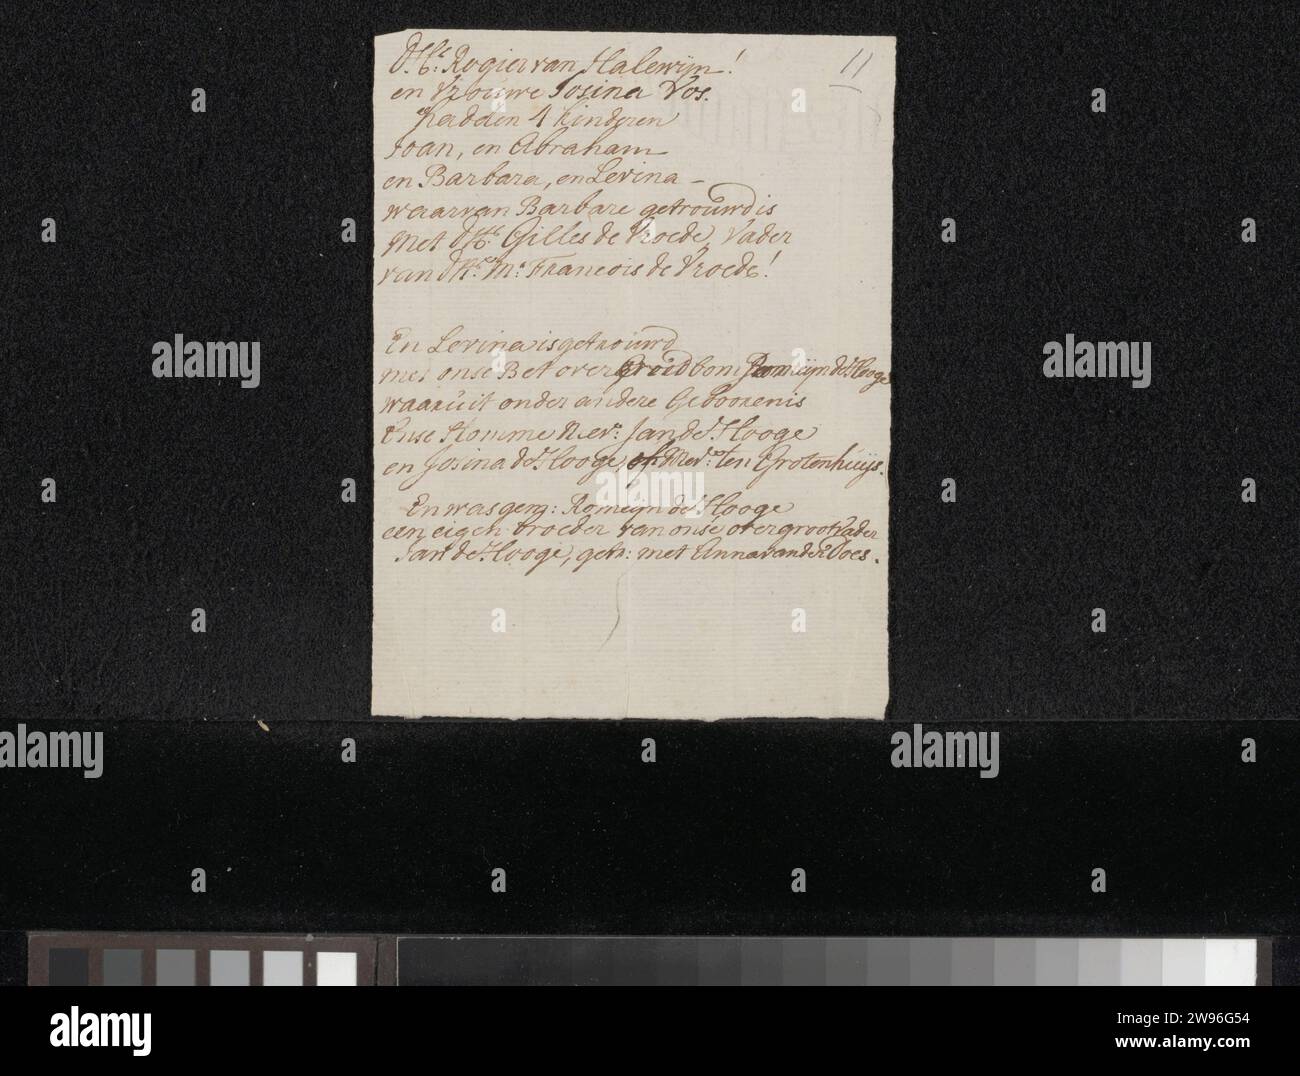 dHr. Rogier van Halewijn!
en Vrouwe Josina Vos.
hadden 4 kinderen
Joan, en Abraham
en Barbara, en Levina –
waarvan Barbare getrouwd is
met dHr. Gilles de Vroede, Vader
van dHr. Mr. Francois de Vroede!
En Levina is getrouwd
met onse Bet over Romeijn de Hooge
waaruit onder andere Geboorenis
onse de Hooge
en Josina de Hooge of ten Grotenhuijs.
En was gem: Romeijn de Hooge
een eigen broeder van onse overgrootvader
Jan de Hooge, geh: met Anna van der Does.
11
alamy
Image ID: 2W96G54
www.alamy.com